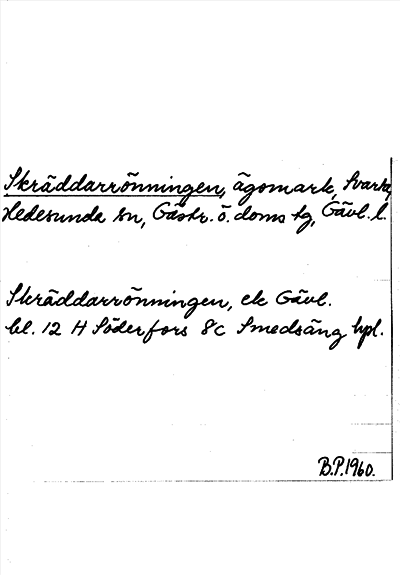 Skräddarrönningen, ägomark, Svarta,
Hedesunda sn, Gästr. ö. doms tg, Gävl. l.
Skräddarrönningen, ek Gävl.
bl. 12 H Söderfors 8c Smedsäng hpl.
B.P. 1960.